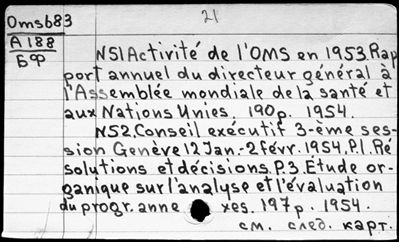 Oms683
21
A188
БФ
N51 Activité de l'OMS en 1953. Rap
port annuel du directeur général à
l'Assemblée mondiale de la santé et
aux Nations Unies. 190p. 1954.
N52. Conseil exécutif 3-ème ses-
sion Genève 12 Jan.-2 févr. 1954. P.1. Ré
solutions et décisions. P.3. Etude or-
ganique sur l'analyse et l'évaluation
du progr. anne xes. 197p. 1954.
см. след. карт.